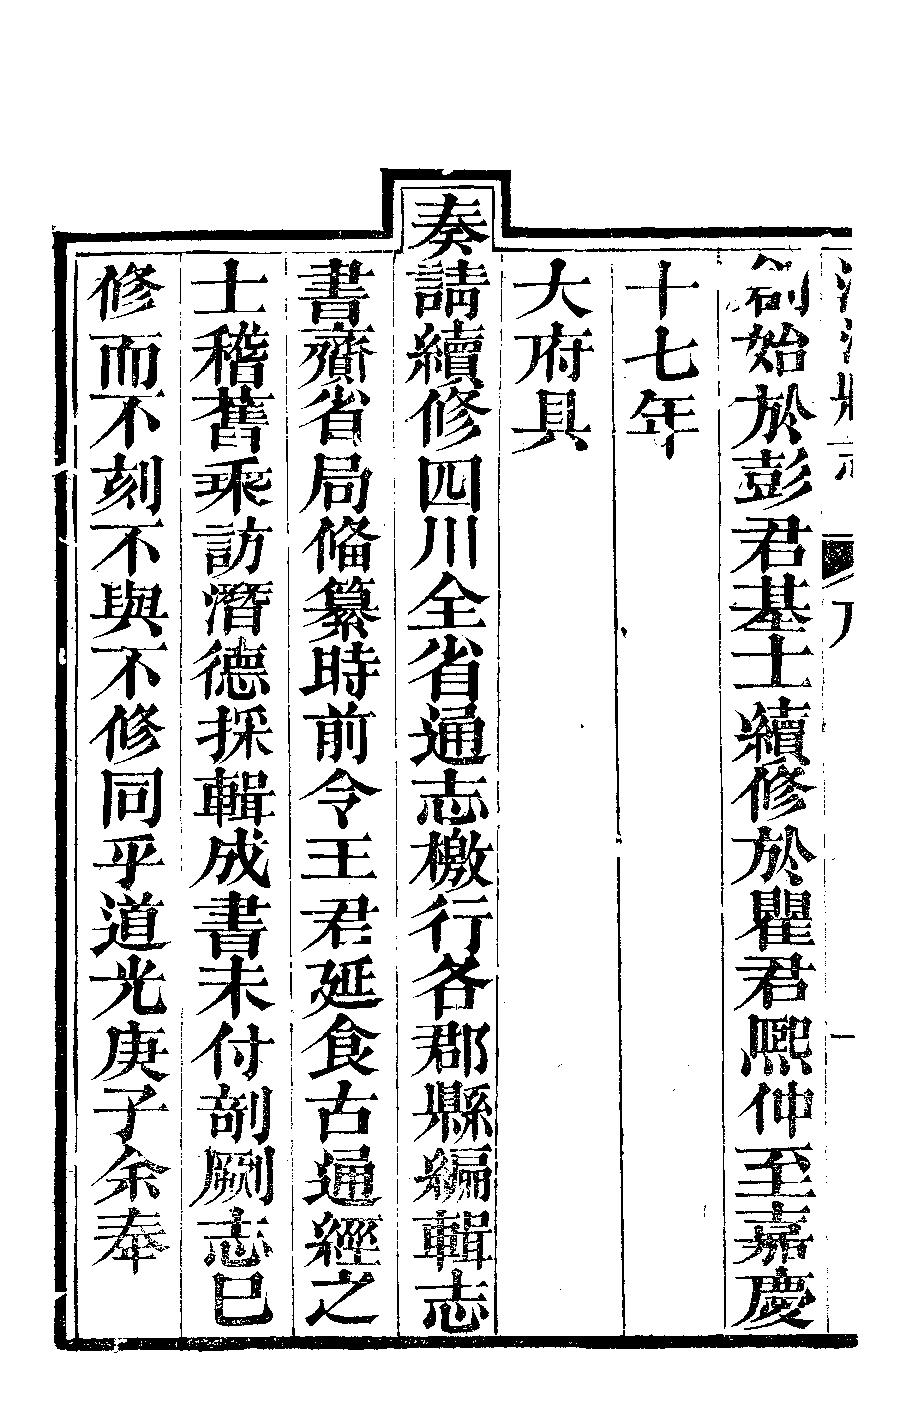 創始於彭君基士續修於瞿君熈仲至嘉慶
十七年
大府具
奏請續修四川全省通志檄行各郡縣編輯志
書齎省局俻纂時前令王君延食古通經之
士稽舊乘訪潛德採輯成書未付剞劂志已
修而不刻不與不修同乎道光庚子余奉